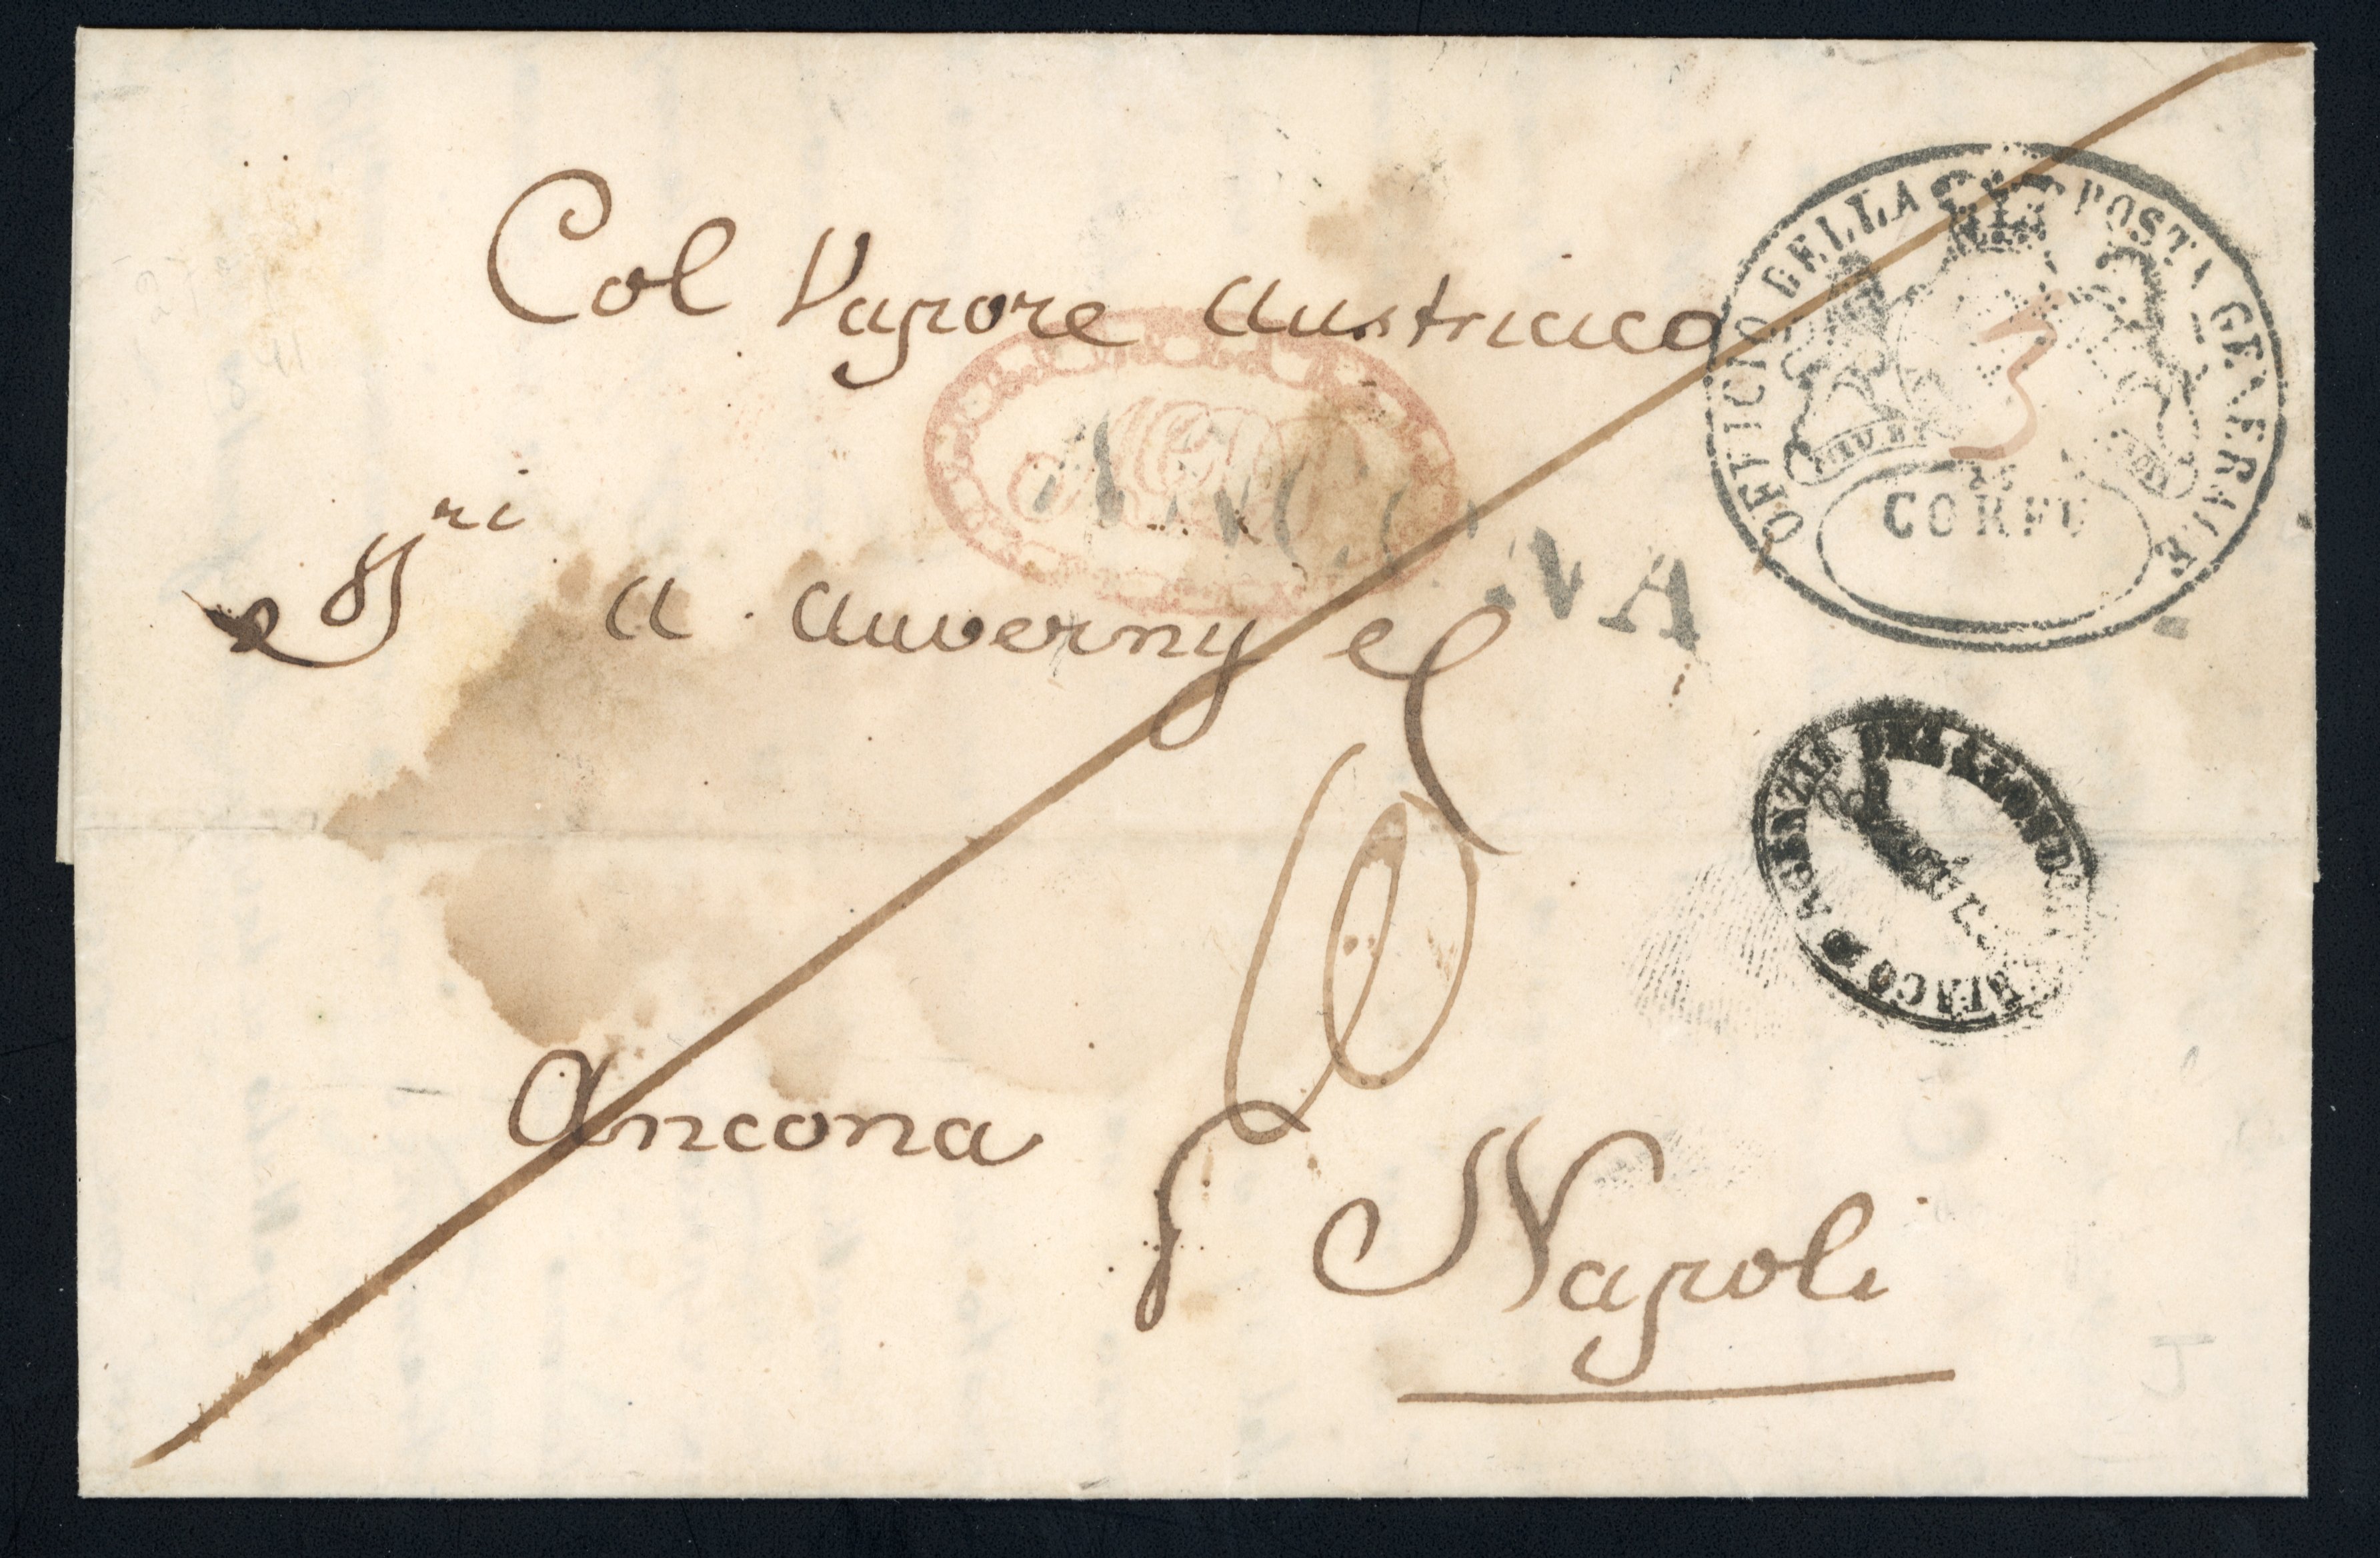 Col Vapore austriaco
Sri A. Auverny e C
Ancona
p Napoli
OFFICIO DELLA POSTA GENERALE
CORFU
3
ANCONA
AGENZIA DEL LLOYD AUSTRIACO